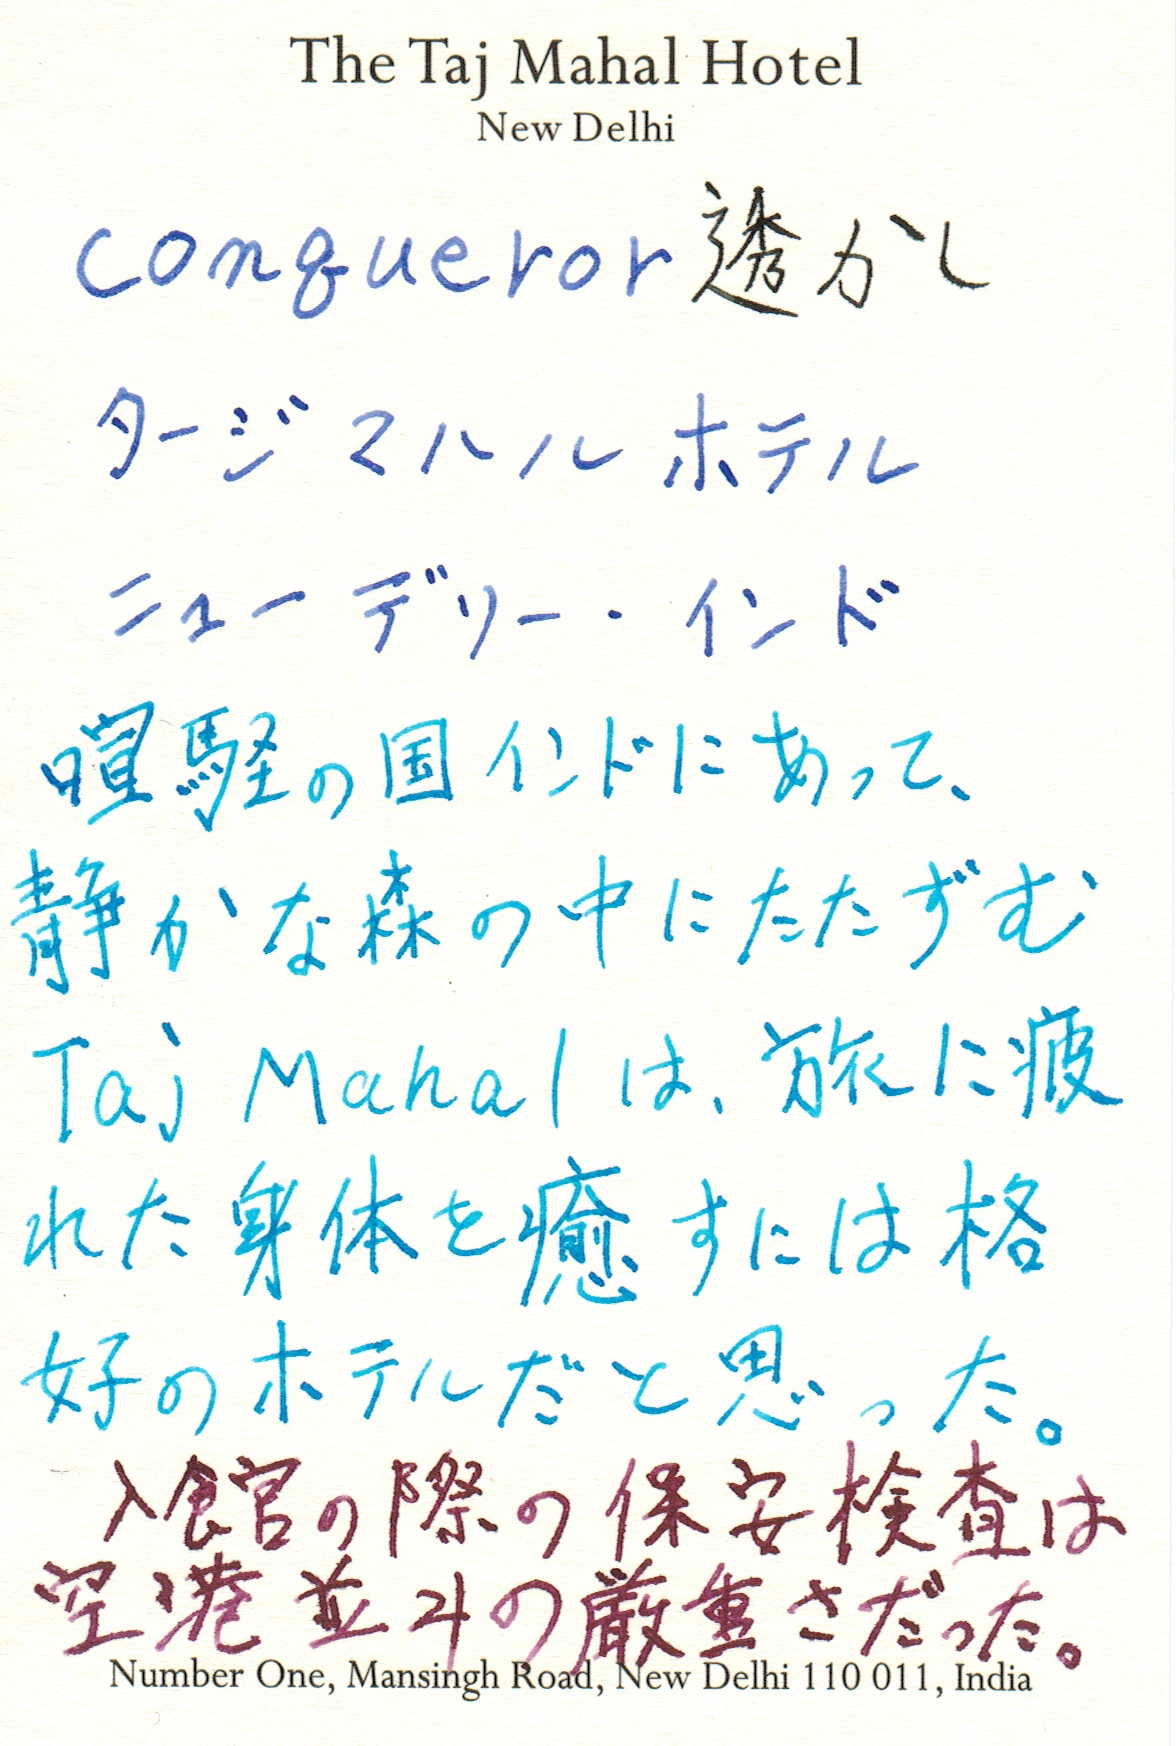 The Taj Mahal Hotel
New Delhi
conqueror透かし
タージ マハル ホテル
ニューデリー・インド
喧騒の国インドにあって、
静かな森の中にたたずむ
Taj Mahalは、旅に疲
れた身体を癒すには格
好のホテルだと思った。
入館の際の保安検査は
空港並みの厳重さだった。
Number One, Mansingh Road, New Delhi 110 011, India